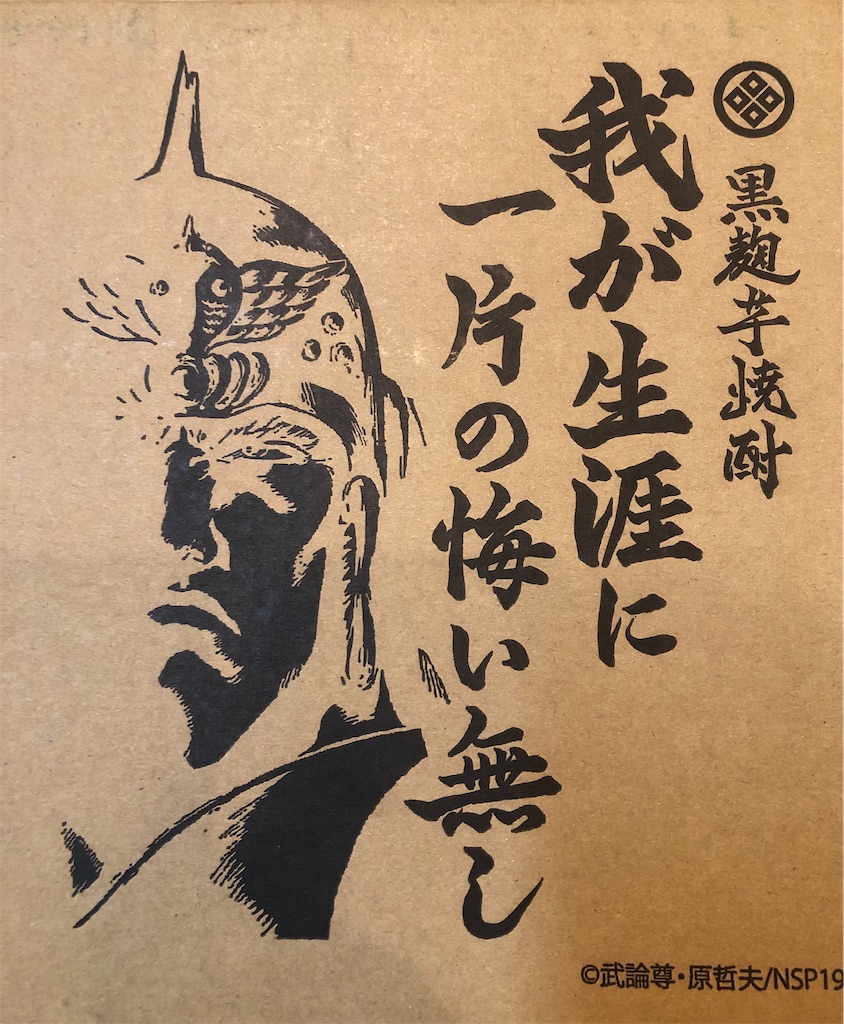 黒麹芋焼酎
我が生涯に
一片の悔い無し
©武論尊・原哲夫/NSP19